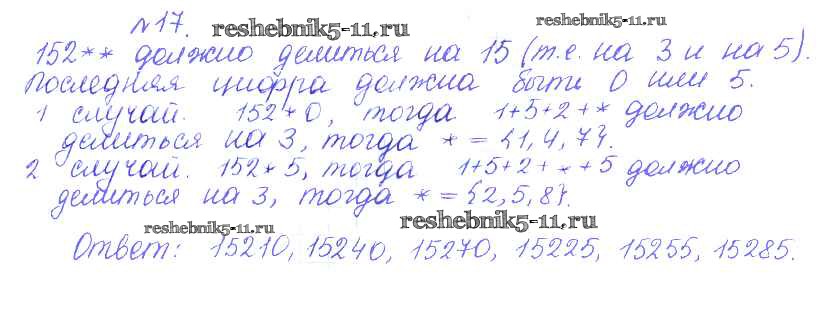 №17. reshebnik5-11.ru reshebnik5-11.ru
152** должно делиться на 15 (т.е. на 3 и на 5).
Последняя цифра должна быть 0 или 5.
1 случай. 152*0, тогда 1+5+2+* должно
делиться на 3, тогда * = {1, 4, 7}.
2 случай. 152*5, тогда 1+5+2+*+5 должно
делиться на 3, тогда * = {2, 5, 8}.
reshebnik5-11.ru reshebnik5-11.ru
Ответ: 15210, 15240, 15270, 15225, 15255, 15285.